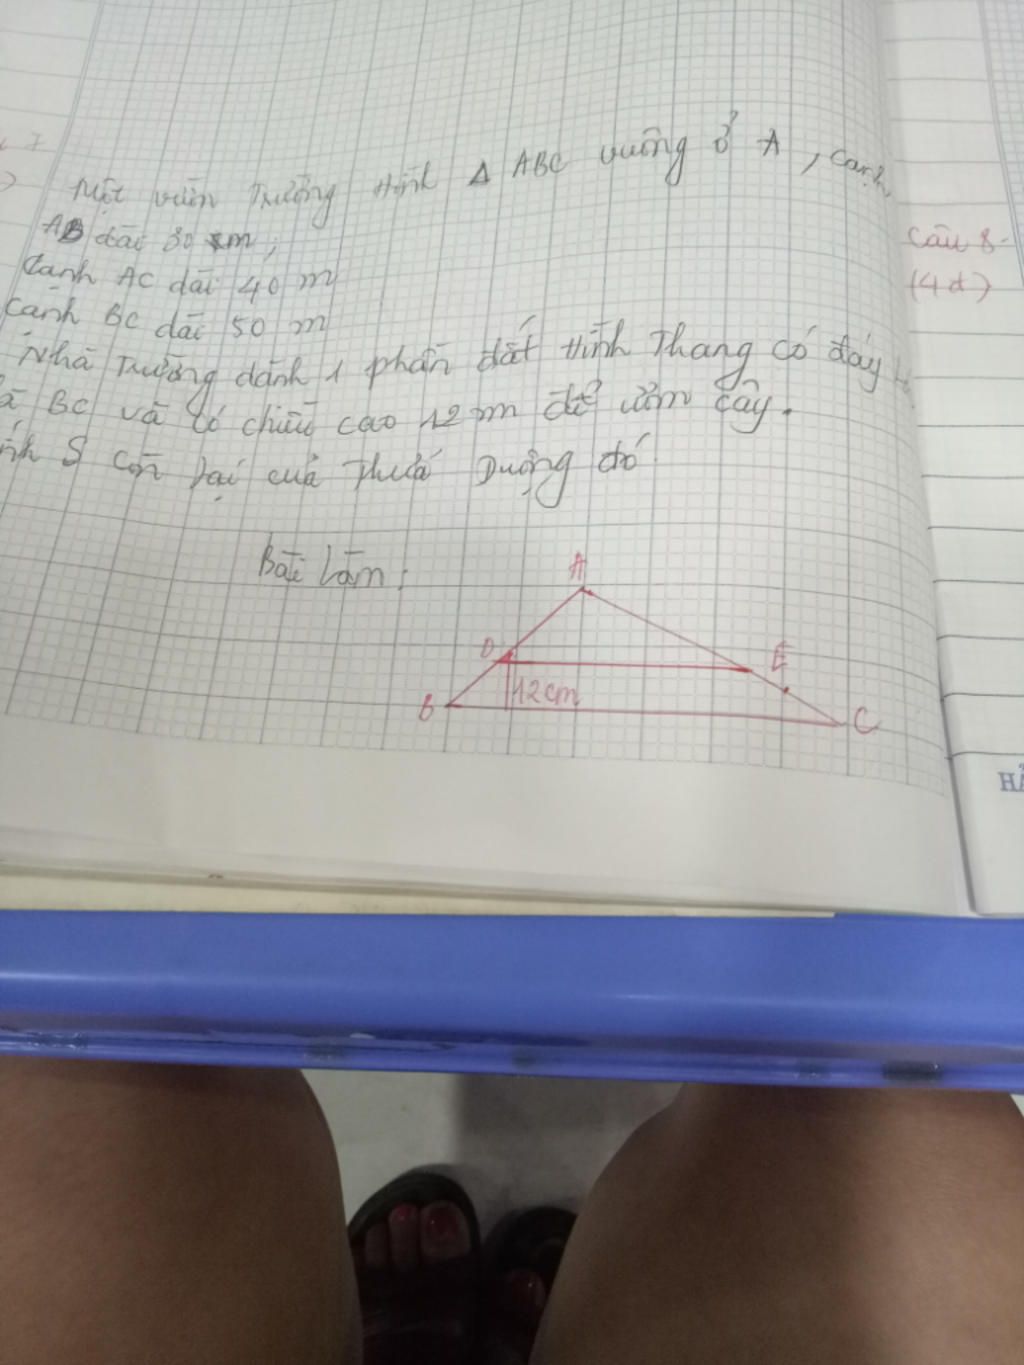 Một vườn Trường Hình Δ ABC vuông ở A, cạnh
AB dài 30 m,
Cạnh AC dài 40 m
Cạnh BC dài 50 m
Nhà Trường dành 1 phần đất Hình Thang có đáy
là BC và có chiều cao 12 m để ươm cây.
S còn lại của Thửa Ruộng đó
Câu 8
(4đ)
Bài Làm:
A
D
E
12cm
B
C
HẢ